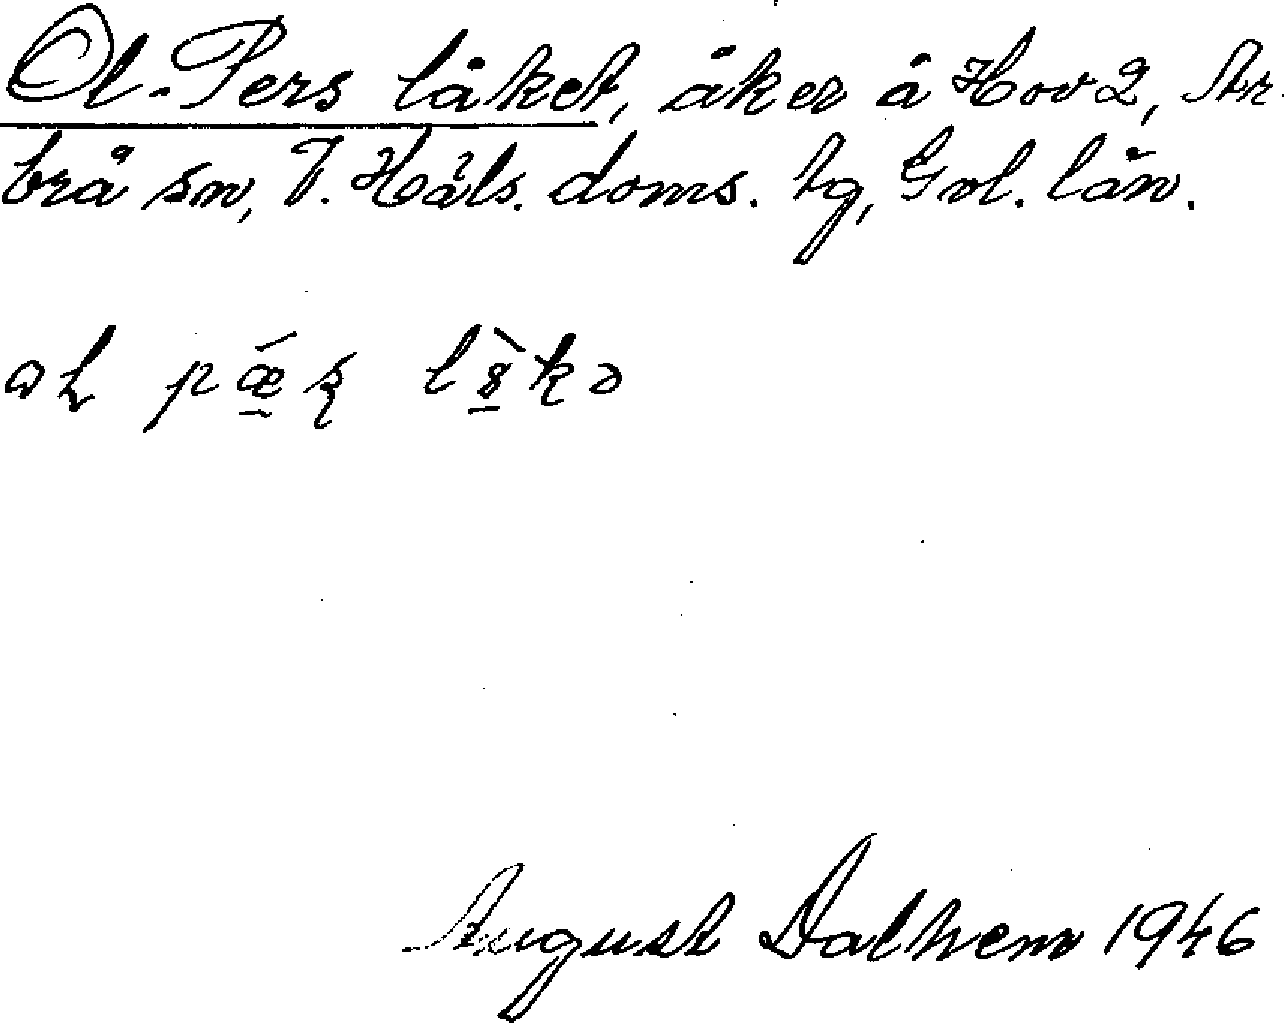 Ol-Pers låket, åker å Hov 2, Ar-
brå sn, V. Häls. doms. tg, Gvl. län.
aɭ pǽ̱ʂ l8̱̀kə
August Dalhem 1946